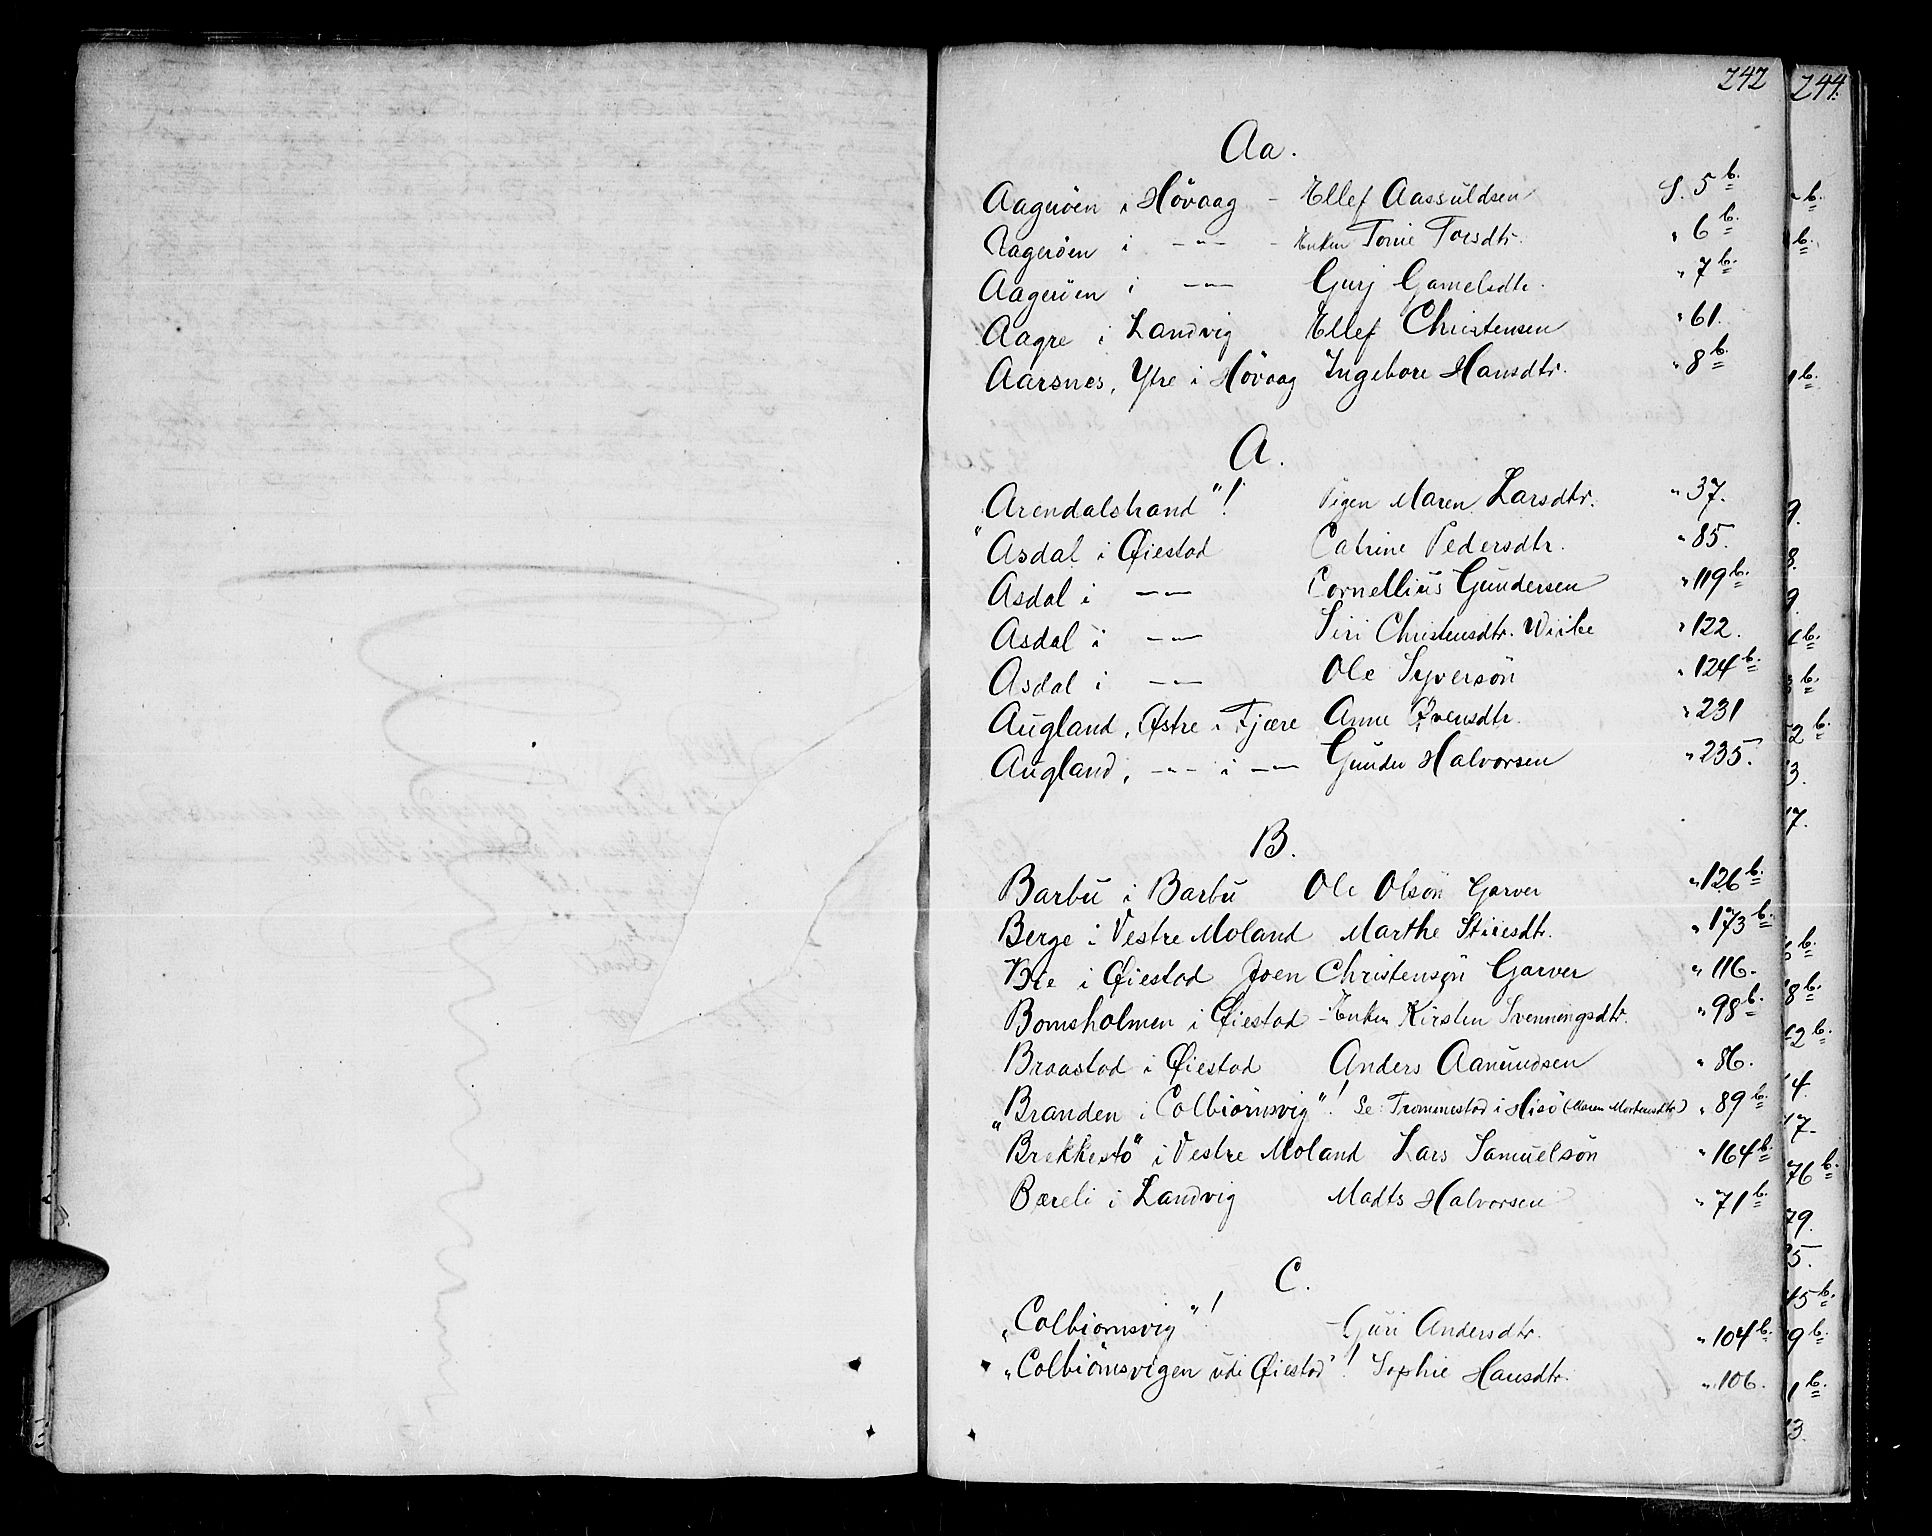 242
244.
Aa.
Aageröen i Hövaag - Ellef Aassuldsen S. 5 b.
Aageröen i -"- - Enken Torne Torsdtr. " 6 b.
Aageröen i -"- Gurj Gamelsdtr. " 7 b.
Aagre i Landvig Ellef Christensen " 61.
Aarsnes, Ytre i Hövaag Ingebore Hansdtr. " 8 b.
A.
"Arendalstrand"! Pigen Maren Larsdtr. " 37.
Asdal i Øiestad Catrine Pedersdtr. " 85.
Asdal i -"- Cornellius Gundersen " 119 b.
Asdal i -"- Siri Christensdtr. " 122.
Asdal i -"- Ole Syversön " 124 b.
Augland, Østre i Fjære Anne Øvensdtr. " 231
Augland, -"- i -"- Gunder Halvorsen " 235.
B.
Barbu i Barbu Ole Olsön Garver " 126 b.
Berge i Vestre Moland Marthe " 173 b.
Bie i Øiestad Joen Christensøn Garver " 116.
Bomsholmen i Øiestad - Enken Kirsten Svenningsdtr. " 98 b.
Braastad i Øiestad Anders Aanundsen " 86.
"Branden i Colbiörnsvig"! Se: Trommestad i Hisö (Maren Mortensdtr) " 89 b.
Brekkestö" i Vestre Moland Lars Samuelsön " 164 b.
Bæreli i Landvig Madts Halvorsen " 71 b.
C.
"Colbiornsvig"! Guri Andersdtr. " 104 b.
"Colbiörnsvigen udi Øiestad"! Sophie Hansdtr. " 106.